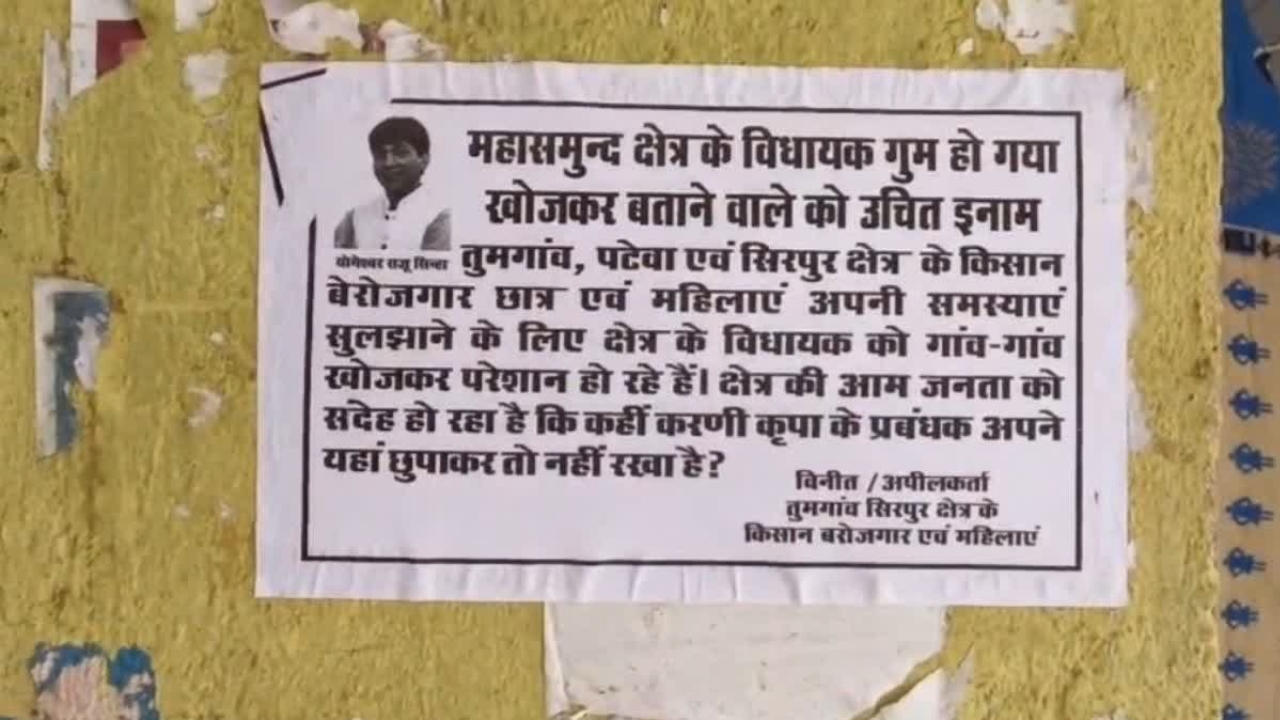 महासमुन्द क्षेत्र के विधायक गुम हो गया
खोजकर बताने वाले को उचित इनाम
योगेश्वर राजू सिन्हा
तुमगांव, पटेवा एवं सिरपुर क्षेत्र के किसान
बेरोजगार छात्र एवं महिलाएं अपनी समस्याएं
सुलझाने के लिए क्षेत्र के विधायक को गांव-गांव
खोजकर परेशान हो रहे हैं। क्षेत्र की आम जनता को
सदेह हो रहा है कि कहीं करणी कृपा के प्रबंधक अपने
यहां छुपाकर तो नहीं रखा है?
विनीत /अपीलकर्ता
तुमगांव सिरपुर क्षेत्र के
किसान बरोजगार एवं महिलाएं